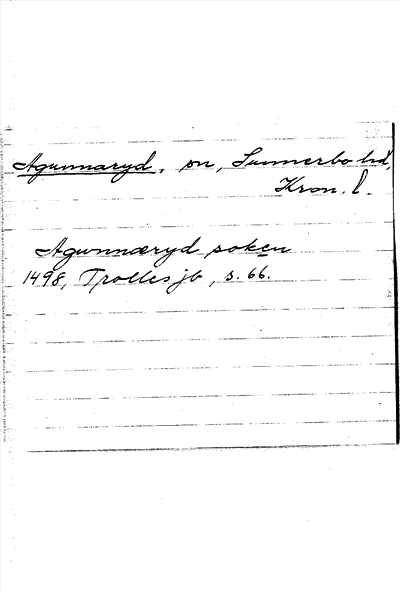 Agunnaryd, sn, Sunnerbo hd,
Kron. l.
Agunnæryd soken
1498, Trolles jb, s. 66.